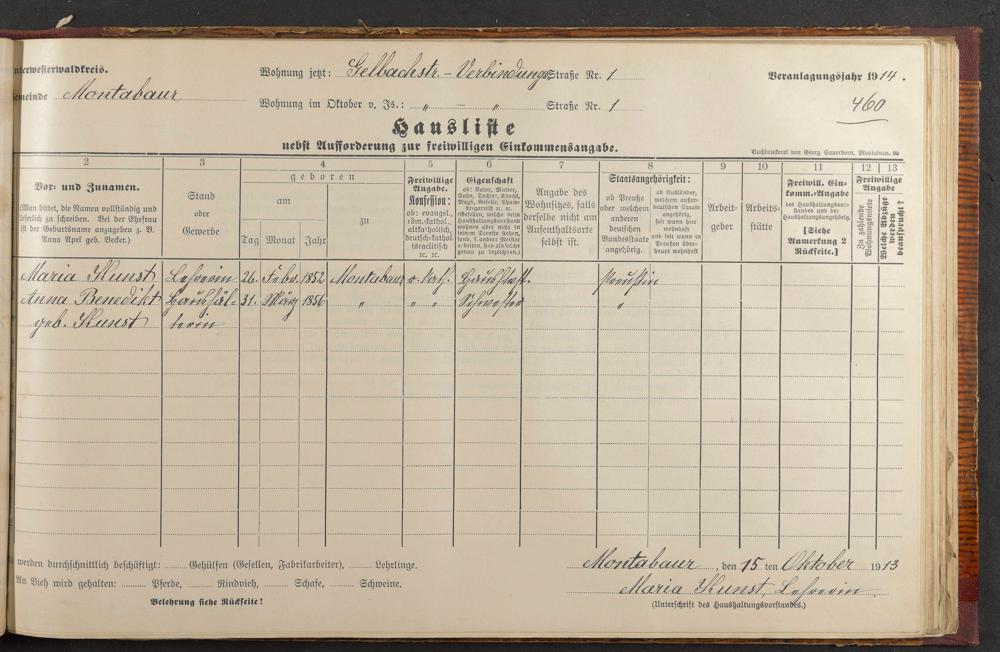 nterwesterwaldkreis.
Wohnung jetzt: Gelbachstr. - Verbindungs Straße Nr. 1
Veranlagungsjahr 1914.
emeinde Montabaur
Wohnung im Oktober v. Js.: „ — „ Straße Nr. 1
460
Hausliste
nebst Aufforderung zur freiwilligen Einkommensangabe.
Buchdruckerei von Georg Sauerborn, Montabaur.
2 3 4 5 6 7 8 9 10 11 12 13
Vor- und Zunamen.
(Man bittet, die Namen vollständig und
leserlich zu schreiben. Bei der Ehefrau
ist der Geburtsname anzugeben z. B.
Anna Apel geb. Becker.)
Stand
oder
Gewerbe
geboren
am
Tag Monat Jahr
zu
Freiwillige
Angabe.
Konfession:
ob: evangel.,
röm.-kathol.,
altkatholisch,
deutsch-kathol.
israelitisch
ꝛc. ꝛc.
Eigenschaft
ob: Vater, Mutter,
Sohn, Tochter, Knecht,
Magd, Geselle, Cham-
bregarnist ꝛc. ꝛc.
(Gesellen, welche beim
Haushaltungsvorstand
wohnen aber nicht in
seinem Dienste stehen,
sond. f. andere Meister
arbeiten, sind als solche
genau zu bezeichnen).
Angabe des
Wohnsitzes, falls
derselbe nicht am
Aufenthaltsorte
selbst ist.
Staatsangehörigkeit:
ob Preuße
oder welchen
anderen
deutschen
Bundesstaate
angehörig.
ob Ausländer,
welchem außer-
deutschen Staate
angehörig,
seit wann hier
wohnhaft
und seit wann in
Preußen über-
haupt wohnhaft
Arbeit-
geber
Arbeits-
stätte
Freiwill. Ein-
komm.-Angabe
des Haushaltungsvor-
standes und der
Haushaltungsangehörig.
[Siehe
Anmerkung 2
Rückseite.]
Freiwillige
Angabe
Zu zahlende
Wohnungsmiete
Welche Abzüge
werden
beansprucht?
Maria Kunst Lehrerin 26. Febr. 1852 Montabaur r. kath. Haushalt. Preußin
Anna Benedikt Haushäl- 31. März 1856 „ „ „ Schwester „
geb. Kunst terin
werden durchschnittlich beschäftigt: Gehülfen (Gesellen, Fabrikarbeiter), Lehrlinge.
Montabaur, den 15 ten Oktober 1913
An Vieh wird gehalten: Pferde, Rindvieh, Schafe, Schweine.
Maria Kunst, Lehrerin.
Belehrung siehe Rückseite!
(Unterschrift des Haushaltungsvorstandes.)